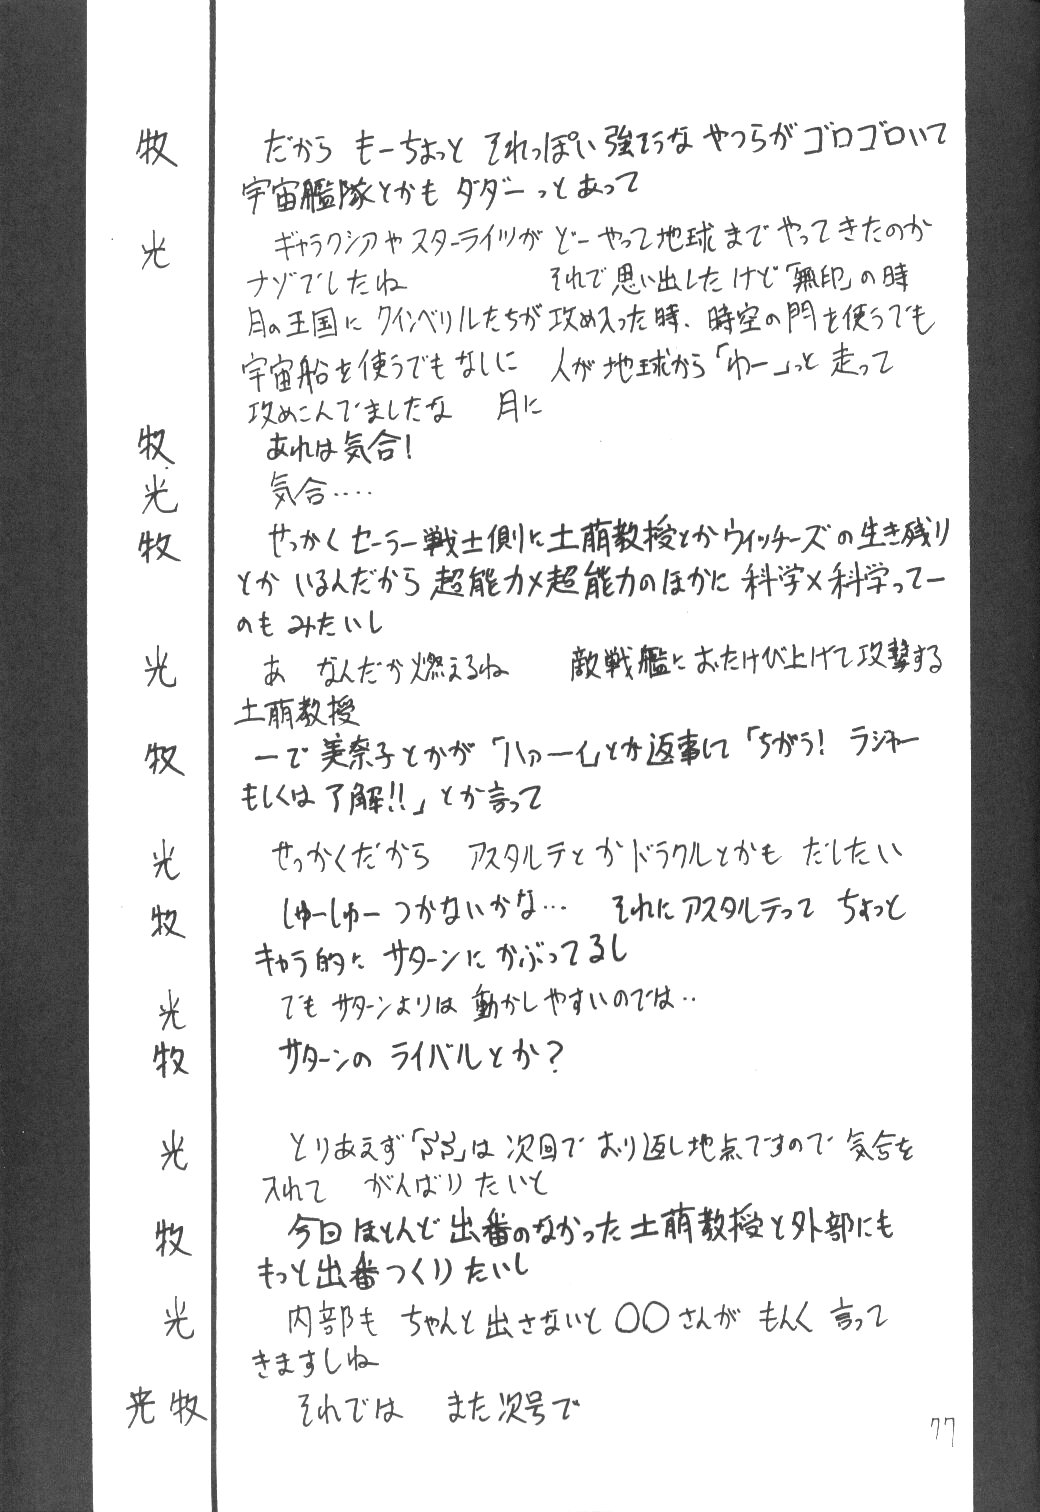 牧 だから もーちょっと それっぽい強そうな やつらがゴロゴロいて
宇宙艦隊とかも ダダーっとあって
光 ギャラクシアや スターライツが どーやって地球まで やってきたのか
ナゾでしたね それで思い出したけど「無印」の時
月の王国に クインベリルたちが 攻め入った時、時空の門を使うでも
宇宙船を使うでもなしに 人が地球から「わー」っと 走って
攻めこんでましたな 月に
牧 あれは気合!
光 気合‥‥
牧 せっかくセーラー戦士側に土萠教授とかウィッチーズの生き残り
とか いるんだから 超能力×超能力のほかに 科学×科学ってー
のも みたいし
光 あ なんだか燃えるね 敵戦艦に おたけび上げて攻撃する
土萠教授
牧 ーで 美奈子とかが「ハァーイ」とか返事して「ちがう! ラジャー
もしくは 了解!!」とか言って
光 せっかくだから アスタルテとか ドラクルとかも だしたい
牧 しゅーしゅー つかないかな… それにアスタルテって ちょっと
キャラ的に サターンに かぶってるし
光 でも サターンよりは 動かしやすいのでは‥
牧 サターンの ライバルとか?
光 とりあえず「」は 次回で おり返し地点ですので 気合を
入れて がんばりたいと
牧 今回 ほとんど 出番のなかった 土萠教授と外部にも
もっと出番つくりたいし
光 内部も ちゃんと出さないと 〇〇さんが もんく 言って
きますしね
光 牧 それでは また次号で
77